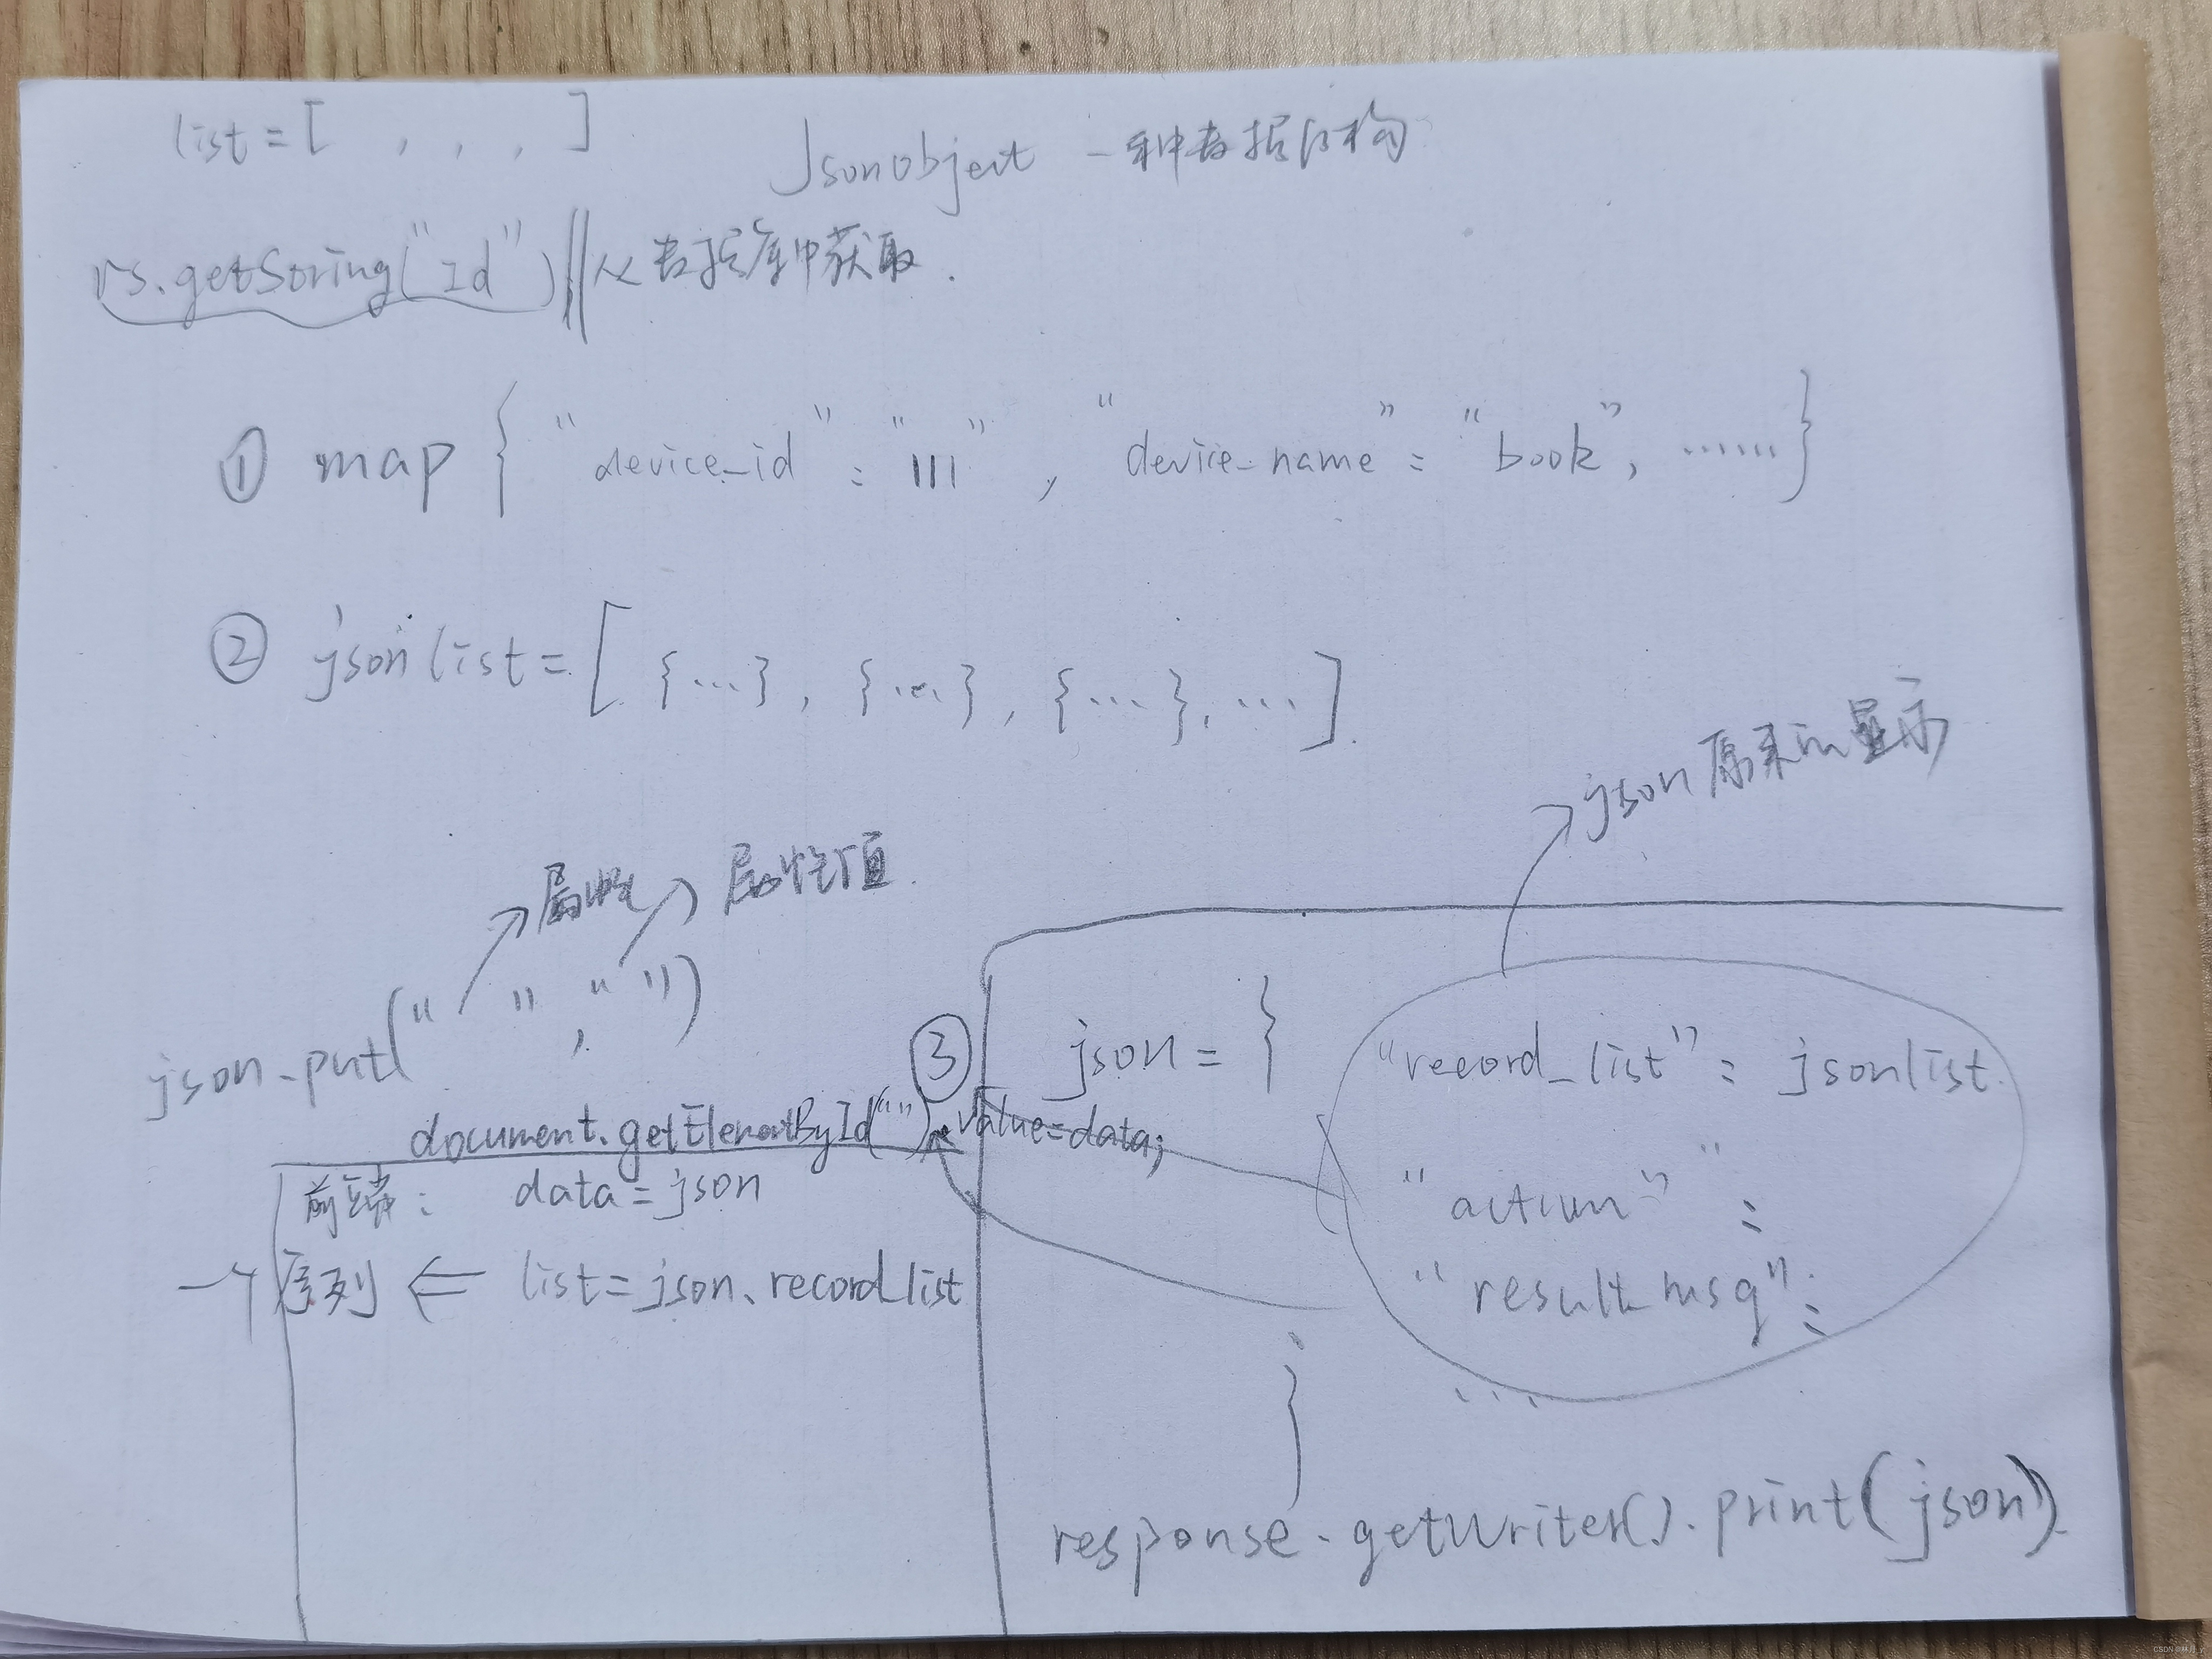 list = [ , , , ]
Jsonobject 一种数据结构
rs.getSoring("Id") || 从数据库中获取.
① map { "device_id" : "111" , "device_name" : "book", ...... }
② jsonlist = [ {...} , {...} , {...}, ... ].
json原来的显示
属性 属性值.
json.put(" " , " ")
③ json = {
"record_list" : jsonlist.
document.getElementById("").value=data;
前端: data = json
"action" :
一个序列 ⇐ list = json.record_list
"result_msg" :
...
}
response.getWriter().print(json).
CSDN